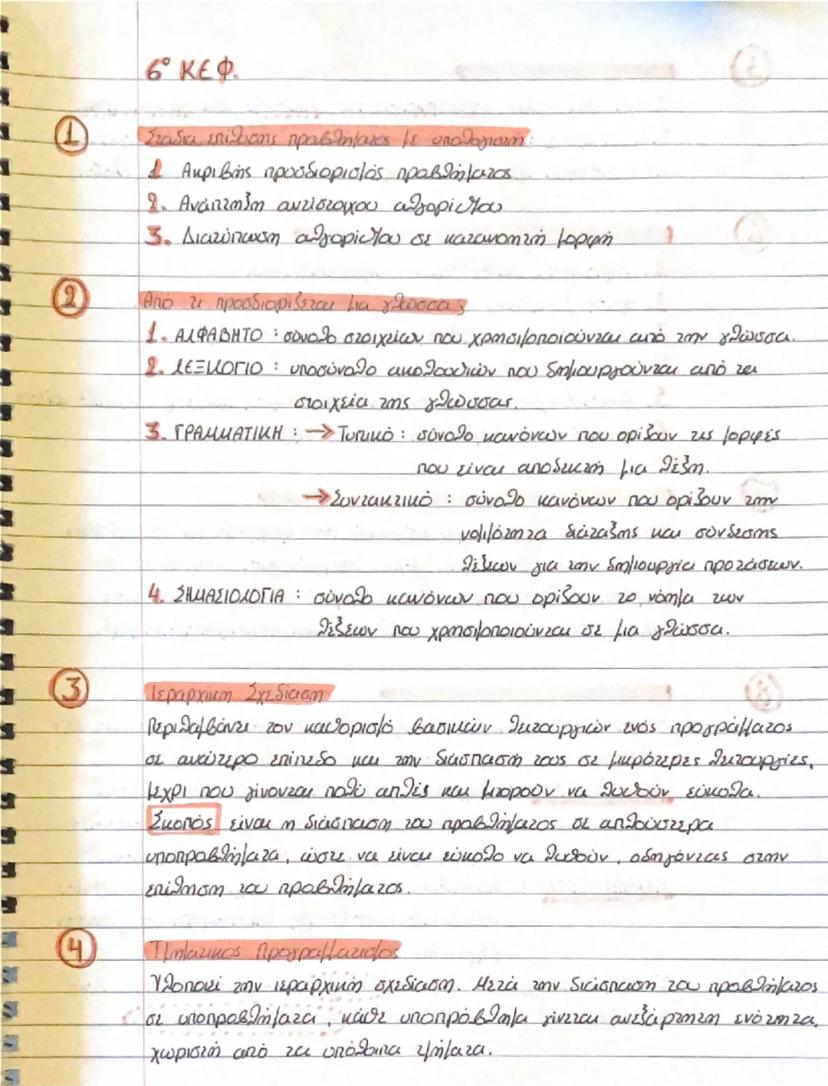 6° ΚΕΦ.
1 Στάδια επίλυσης προβλήματος με υπολογιστή:
1. Ακριβής προσδιορισμός προβλήματος
2. Ανάπτυξη αντίστοιχου αλγορίθμου
3. Διατύπωση αλγορίθμου σε κατανοητή μορφή
2 Από τι προσδιορίζεται μια γλώσσα;
1. ΑΛΦΑΒΗΤΟ : σύνολο στοιχείων που χρησιμοποιούνται από την γλώσσα.
2. ΛΕΞΙΛΟΓΙΟ : υποσύνολο ακολουθιών που δημιουργούνται από τα
στοιχεία της γλώσσας.
3. ΓΡΑΜΜΑΤΙΚΗ : → Τυπικό : σύνολο κανόνων που ορίζουν τις μορφές
που είναι αποδεκτή μια λέξη.
→ Συντακτικό : σύνολο κανόνων που ορίζουν την
νομιμότητα διάταξης και σύνδεσης
λέξεων για την δημιουργία προτάσεων.
4. ΣΗΜΑΣΙΟΛΟΓΙΑ : σύνολο κανόνων που ορίζουν το νόημα των
λέξεων που χρησιμοποιούνται σε μια γλώσσα.
3 Ιεραρχική Σχεδίαση
Περιλαμβάνει τον καθορισμό βασικών λειτουργιών ενός προγράμματος
σε ανώτερο επίπεδο και την διάσπασή τους σε μικρότερες λειτουργίες,
μέχρι που γίνονται πολύ απλές και μπορούν να λυθούν εύκολα.
Σκοπός είναι η διάσπαση του προβλήματος σε απλούστερα
υποπροβλήματα, ώστε να είναι εύκολο να λυθούν, οδηγόντας στην
επίλυση του προβλήματος.
4 Τμηματικός Προγραμματισμός
Υλοποιεί την ιεραρχική σχεδίαση. Μετά την διάσπαση του προβλήματος
σε υποπροβλήματα, κάθε υποπρόβλημα γίνεται ανεξάρτητη ενότητα,
χωριστή από τα υπόλοιπα τμήματα.